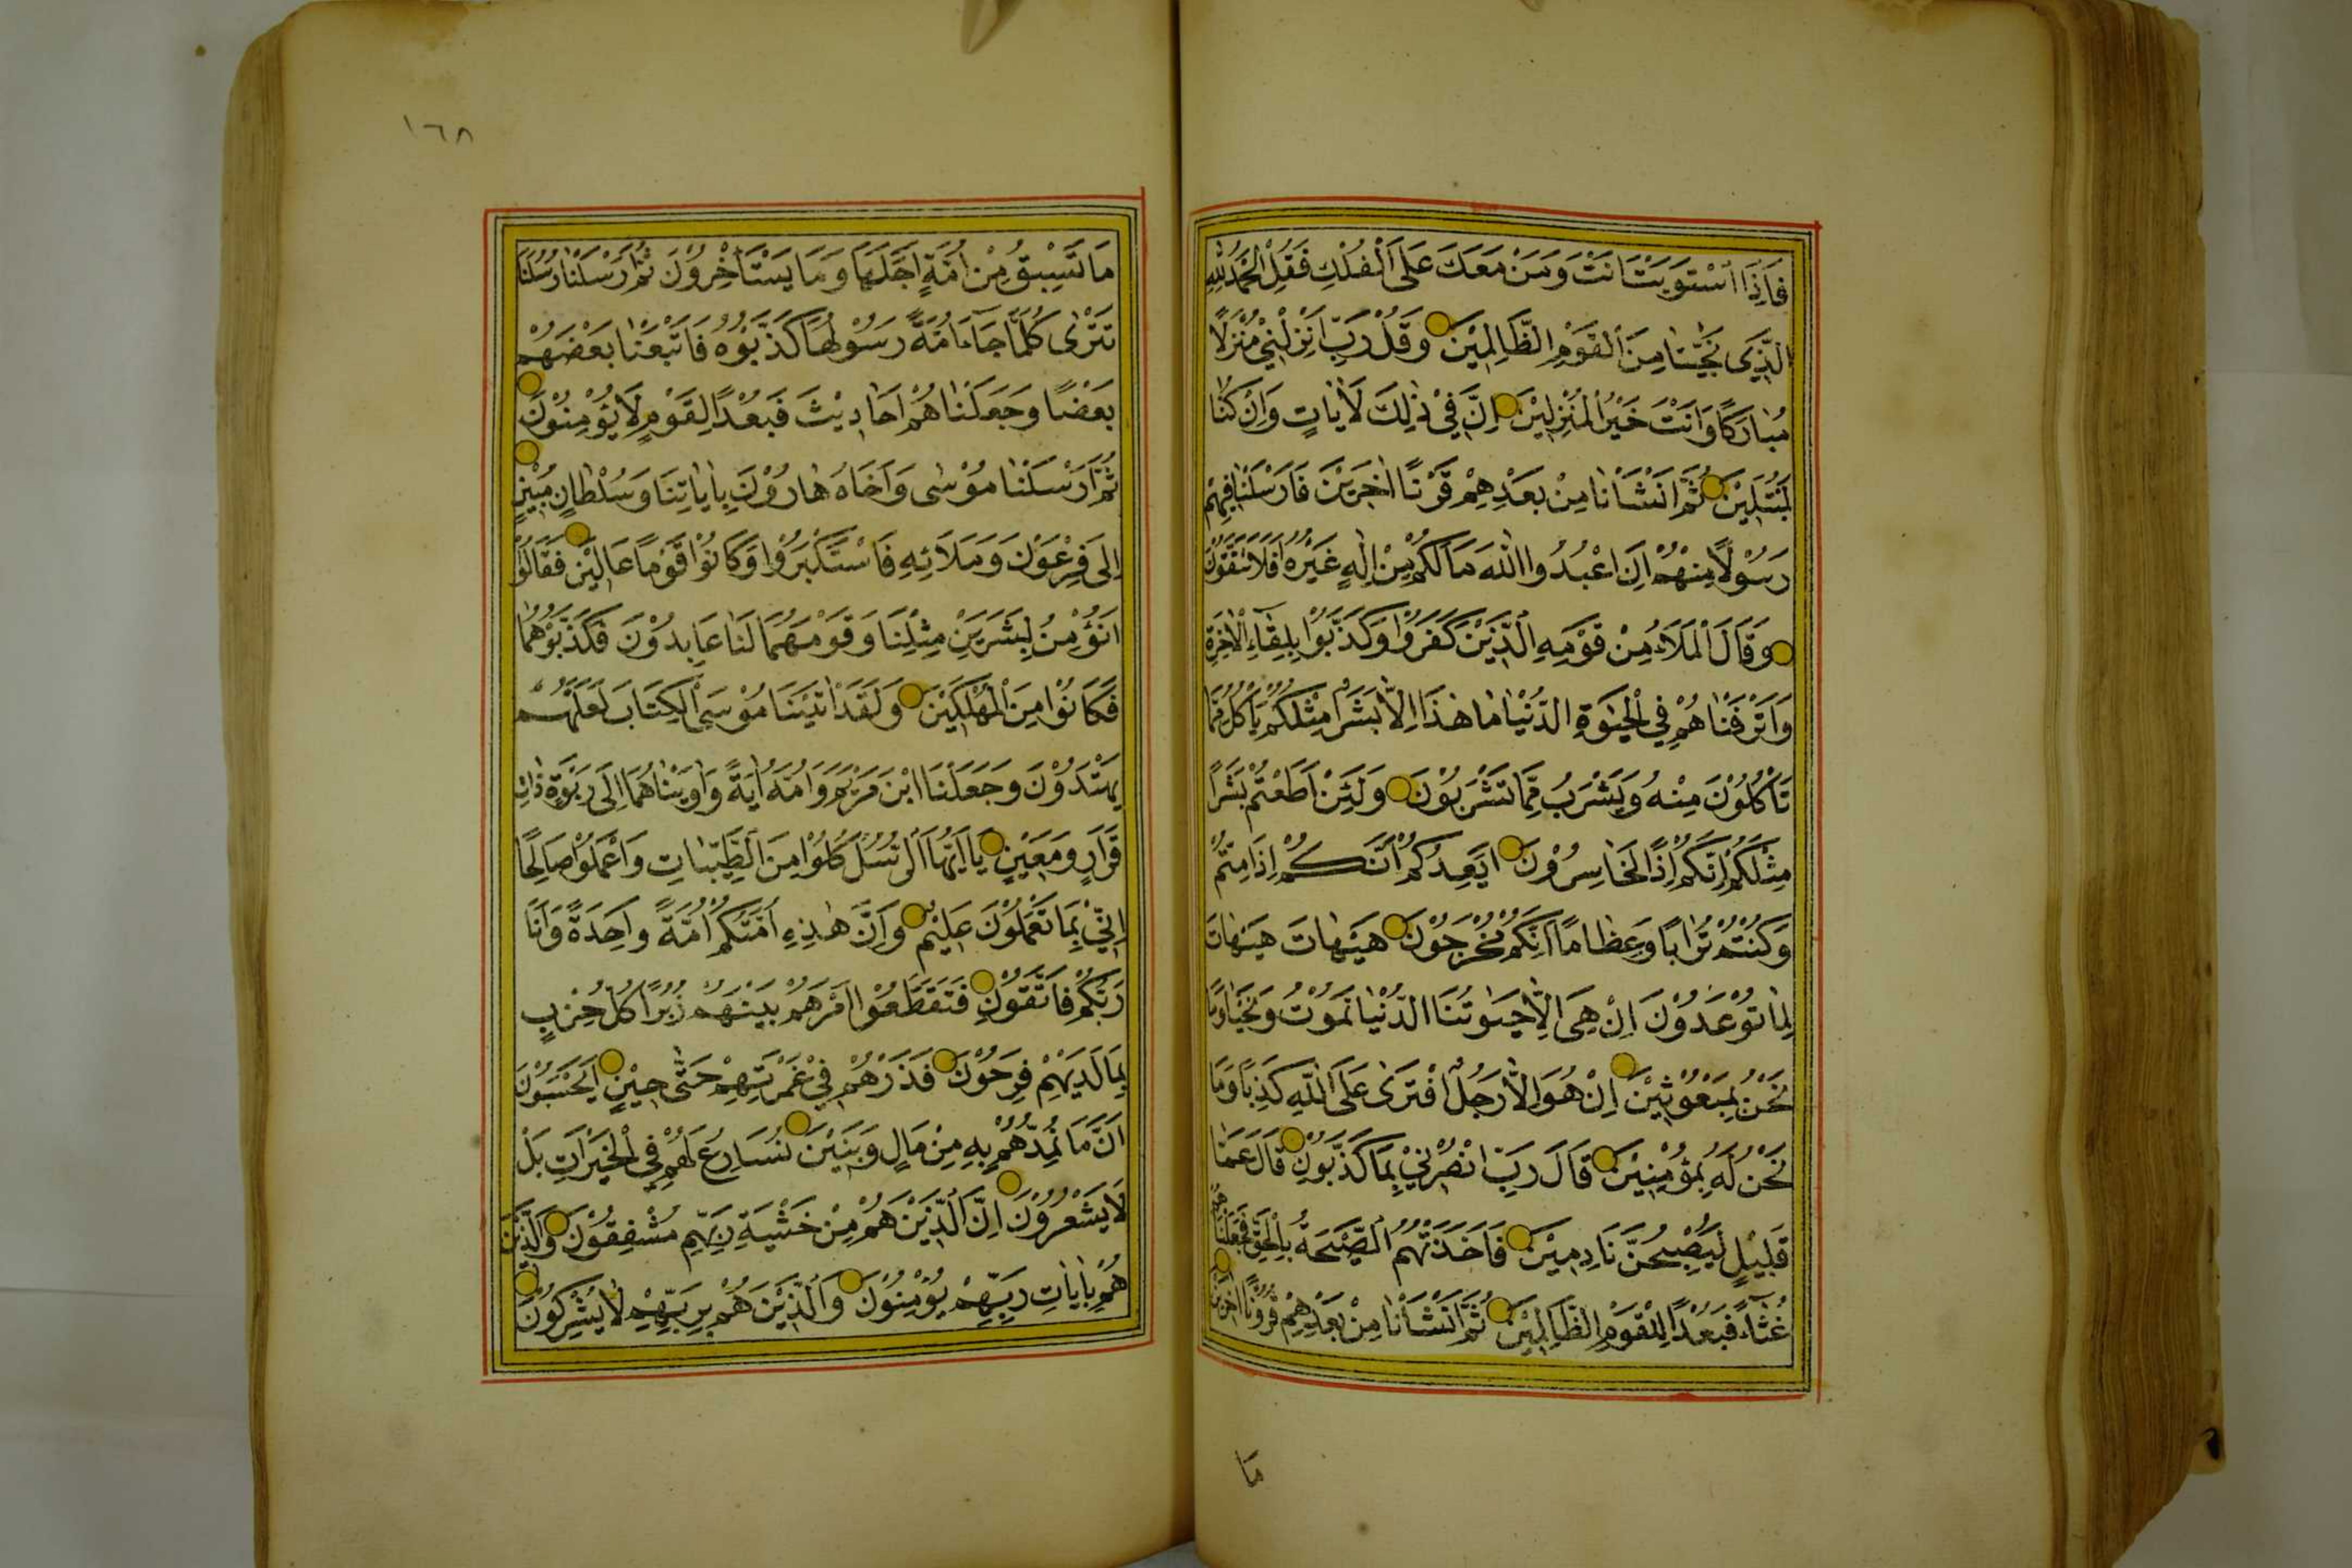 فَاِذَا اسْتَوَيْتَ اَنْتَ وَمَنْ مَعَكَ عَلَى الْفُلْكِ فَقُلِ الْحَمْدُ لِلّٰهِ
الَّذِى نَجّٰينَا مِنَ الْقَوْمِ الظَّالِمِيْنَ وَقُلْ رَبِّ اَنْزِلْنِيْ مُنْزَلًا
مُبٰارَكًا وَاَنْتَ خَيْرُ الْمُنْزِلِيْنَ اِنَّ فِيْ ذٰلِكَ لَاٰيٰاتٍ وَاِنْ كُنّٰا
لَمُبْتَلِيْنَ ثُمَّ اَنْشَاْنٰا مِنْ بَعْدِهِمْ قَرْنًا اٰخَرِيْنَ فَاَرْسَلْنٰا فِيْهِمْ
رَسُوْلًا مِنْهُمْ اَنِ اعْبُدُوا اللّٰهَ مَا لَكُمْ مِنْ اِلٰهٍ غَيْرُهُ اَفَلَا تَتَّقُوْنَ
وَقَالَ الْمَلَاُ مِنْ قَوْمِهِ الَّذِيْنَ كَفَرُوْا وَكَذَّبُوْا بِلِقَآءِ الْاٰخِرَةِ
وَاَتْرَفْنٰا هُمْ فِي الْحَيٰوةِ الدُّنْيٰا مٰا هٰذَا اِلَّا بَشَرٌ مِثْلُكُمْ يَأْكُلُ مِمَّا
تَأْكُلُوْنَ مِنْهُ وَيَشْرَبُ مِمَّا تَشْرَبُوْنَ وَلَئِنْ اَطَعْتُمْ بَشَرًا
مِثْلَكُمْ اِنَّكُمْ اِذًا لَخٰاسِرُوْنَ اَيَعِدُكُمْ اَنَّكُمْ اِذَا مِتُّمْ
وَكُنْتُمْ تُرٰابًا وَعِظٰامًا اَنَّكُمْ مُخْرَجُوْنَ هَيْهٰاتَ هَيْهٰاتَ
لِمٰا تُوْعَدُوْنَ اِنْ هِىَ اِلَّا حَيٰوتُنَا الدُّنْيٰا نَمُوْتُ وَنَحْيٰا وَمٰا
نَحْنُ بِمَبْعُوْثِيْنَ اِنْ هُوَ اِلَّا رَجُلٌ افْتَرٰى عَلَى اللّٰهِ كَذِبًا وَمَا
نَحْنُ لَهُ بِمُؤْمِنِيْنَ قَالَ رَبِّ انْصُرْنِيْ بِمَا كَذَّبُوْنِ قَالَ عَمَّا
قَلِيْلٍ لَيُصْبِحُنَّ نَادِمِيْنَ فَاَخَذَتْهُمُ الصَّيْحَةُ بِالْحَقِّ فَجَعَلْنَاهُمْ
غُثَآءً فَبُعْدًا لِلْقَوْمِ الظَّالِمِيْنَ ثُمَّ اَنْشَاْنٰا مِنْ بَعْدِهِمْ قُرُوْنًا اٰخَرِيْنَ
مَا
١٦٨
مَا تَسْبِقُ مِنْ اُمَّةٍ اَجَلَهَا وَمَا يَسْتَأْخِرُوْنَ ثُمَّ اَرْسَلْنٰا رُسُلَنٰا
تَتْرٰى كُلَّمَا جَآءَ اُمَّةً رَسُوْلُهَا كَذَّبُوْهُ فَاَتْبَعْنٰا بَعْضَهُمْ
بَعْضًا وَجَعَلْنٰا هُمْ اَحَادِيْثَ فَبُعْدًا لِقَوْمٍ لَا يُؤْمِنُوْنَ
ثُمَّ اَرْسَلْنٰا مُوْسٰى وَاَخَاهُ هٰارُوْنَ بِاٰيٰاتِنَا وَسُلْطٰانٍ مُبِيْنٍ
اِلٰى فِرْعَوْنَ وَمَلَا۟ئِهِ فَاسْتَكْبَرُوْا وَكَانُوْا قَوْمًا عَالِيْنَ فَقَالُوْا
اَنُؤْمِنُ لِبَشَرَيْنِ مِثْلِنَا وَقَوْمُهُمَا لَنَا عَابِدُوْنَ فَكَذَّبُوْهُمَا
فَكَانُوْا مِنَ الْمُهْلَكِيْنَ وَلَقَدْ اٰتَيْنَا مُوْسَى الْكِتَابَ لَعَلَّهُمْ
يَهْتَدُوْنَ وَجَعَلْنَا ابْنَ مَرْيَمَ وَاُمَّهُ اٰيَةً وَاٰوَيْنٰاهُمَا اِلٰى رَبْوَةٍ ذٰاتِ
قَرَارٍ وَمَعِيْنٍ يَا اَيُّهَا الرُّسُلُ كُلُوْا مِنَ الطَّيِّبٰاتِ وَاعْمَلُوْا صَالِحًا
اِنِّيْ بِمَا تَعْمَلُوْنَ عَلِيْمٌ وَاِنَّ هٰذِهِ اُمَّتُكُمْ اُمَّةً وَاحِدَةً وَاَنَا
رَبُّكُمْ فَاتَّقُوْنِ فَتَقَطَّعُوْا اَمْرَهُمْ بَيْنَهُمْ زُبُرًا كُلُّ حِزْبٍ
بِمَا لَدَيْهِمْ فَرِحُوْنَ فَذَرْهُمْ فِيْ غَمْرَتِهِمْ حَتّٰى حِيْنٍ اَيَحْسَبُوْنَ
اَنَّمَا نُمِدُّهُمْ بِهِ مِنْ مَالٍ وَبَنِيْنَ نُسَارِعُ لَهُمْ فِي الْخَيْرَاتِ بَلْ
لَا يَشْعُرُوْنَ اِنَّ الَّذِيْنَ هُمْ مِنْ خَشْيَةِ رَبِّهِمْ مُشْفِقُوْنَ وَالَّذِيْنَ
هُمْ بِاٰيٰاتِ رَبِّهِمْ يُؤْمِنُوْنَ وَالَّذِيْنَ هُمْ بِرَبِّهِمْ لَا يُشْرِكُوْنَ